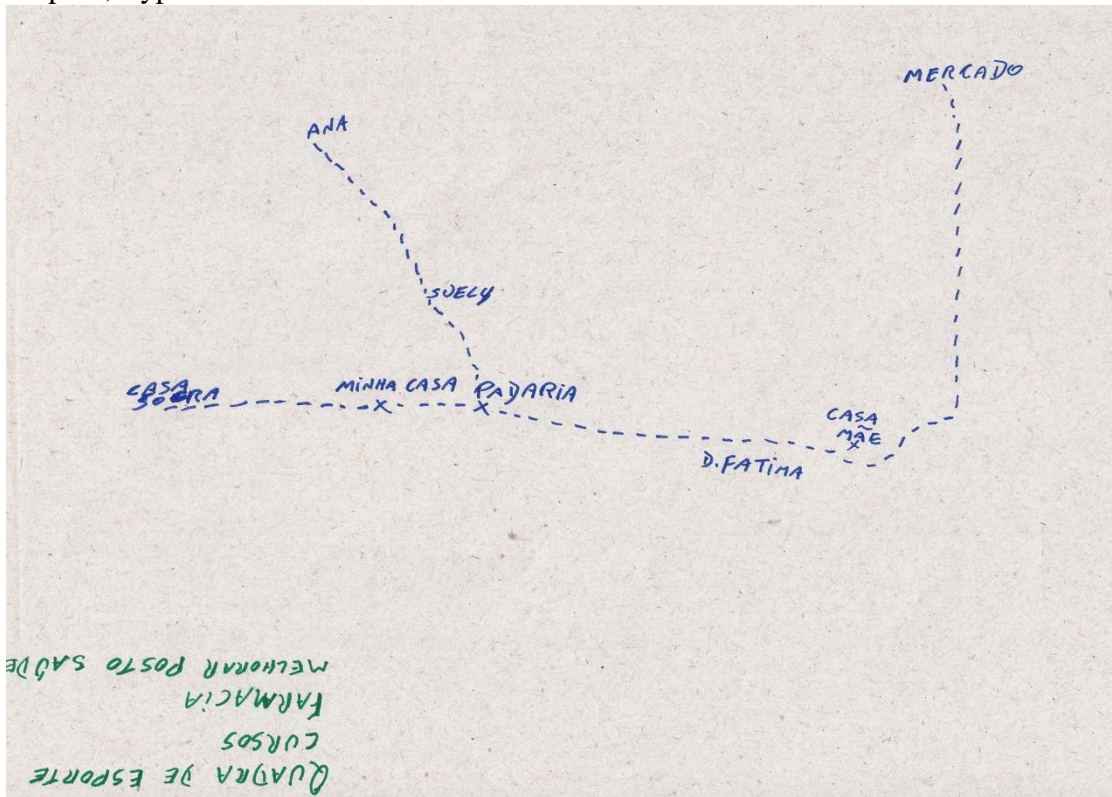 MERCADO
ANA
SUELY
CASA
SOGRA
MINHA CASA
PADARIA
CASA
MÃE
D. FATIMA
QUADRA DE ESPORTE
CURSOS
FARMACIA
MELHORAR POSTO SAÚDE